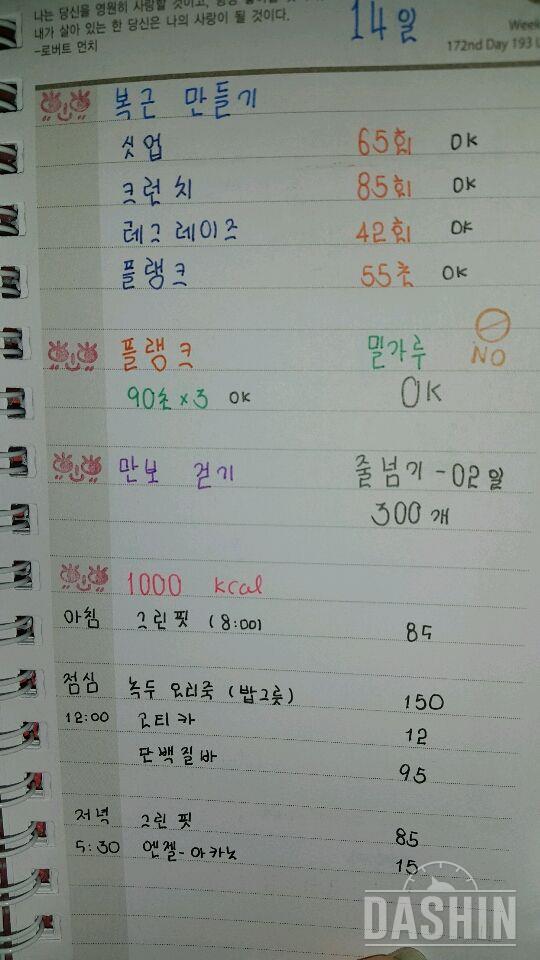 나는 당신을 영원히 사랑할 것이고,
내가 살아 있는 한 당신은 나의 사랑이 될 것이다.
-로버트 먼치
14일
Week
172nd Day 193
복근 만들기
싯업 65회 OK
크런치 85회 OK
레그레이즈 42회 OK
플랭크 55초 OK
플랭크 밀가루 NO
90초 x 3 OK OK
만보 걷기 줄넘기 - 02일
300개
1000 kcal
아침 그린핏 (8:00) 85
점심 녹두 오리죽 (밥그릇) 150
12:00 고티카 12
단백질바 95
저녁 그린핏 85
5:30 엔젤-아카노 15
DASHIN